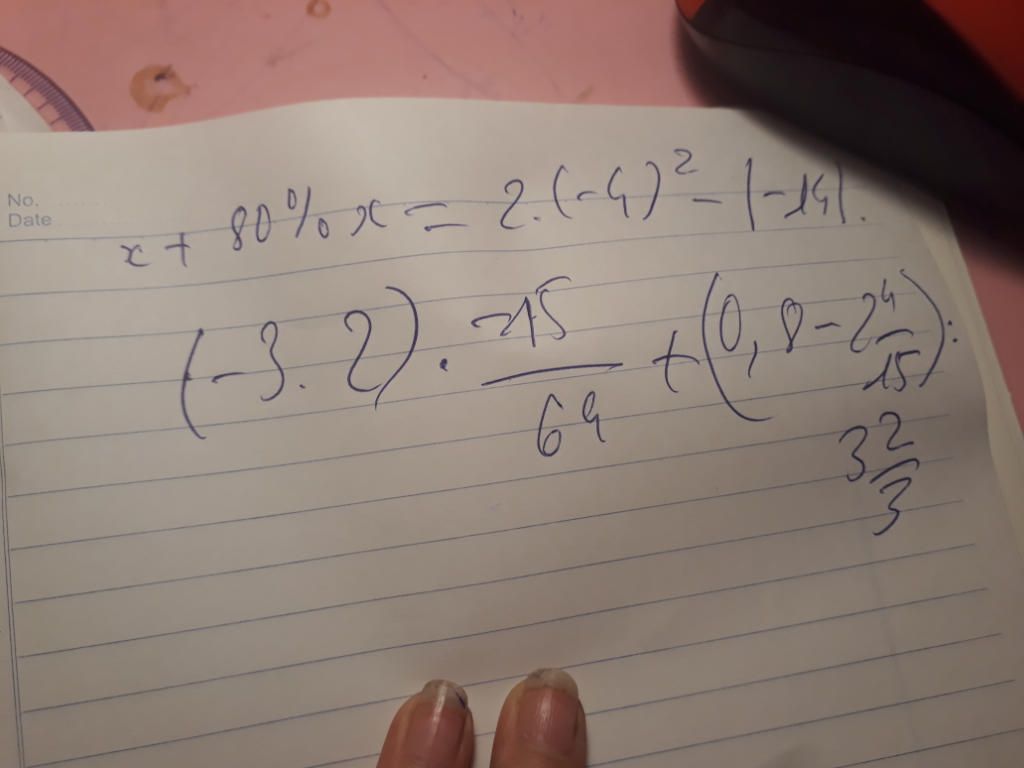 No.
Date
x + 80% x = 2.(-4)² - |-14|.
(-3.2) . -15/64 + (0,8 - 2 4/15) :
3 2/3